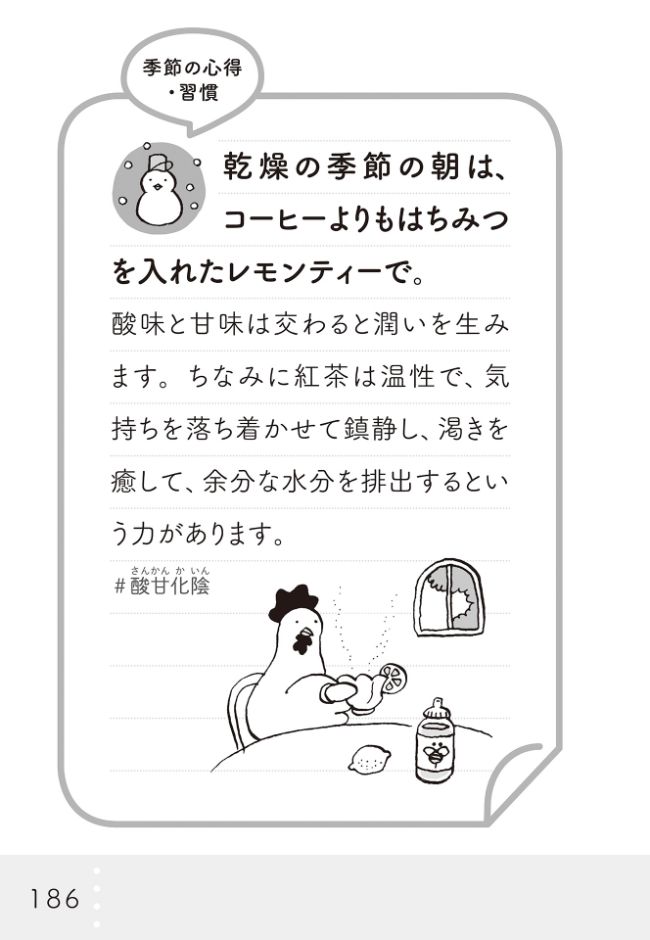 季節の心得
・習慣
乾燥の季節の朝は、
コーヒーよりもはちみつ
を入れたレモンティーで。
酸味と甘味は交わると潤いを生み
ます。ちなみに紅茶は温性で、気
持ちを落ち着かせて鎮静し、渇きを
癒して、余分な水分を排出するとい
う力があります。
さんかん か いん
#酸甘化陰
186